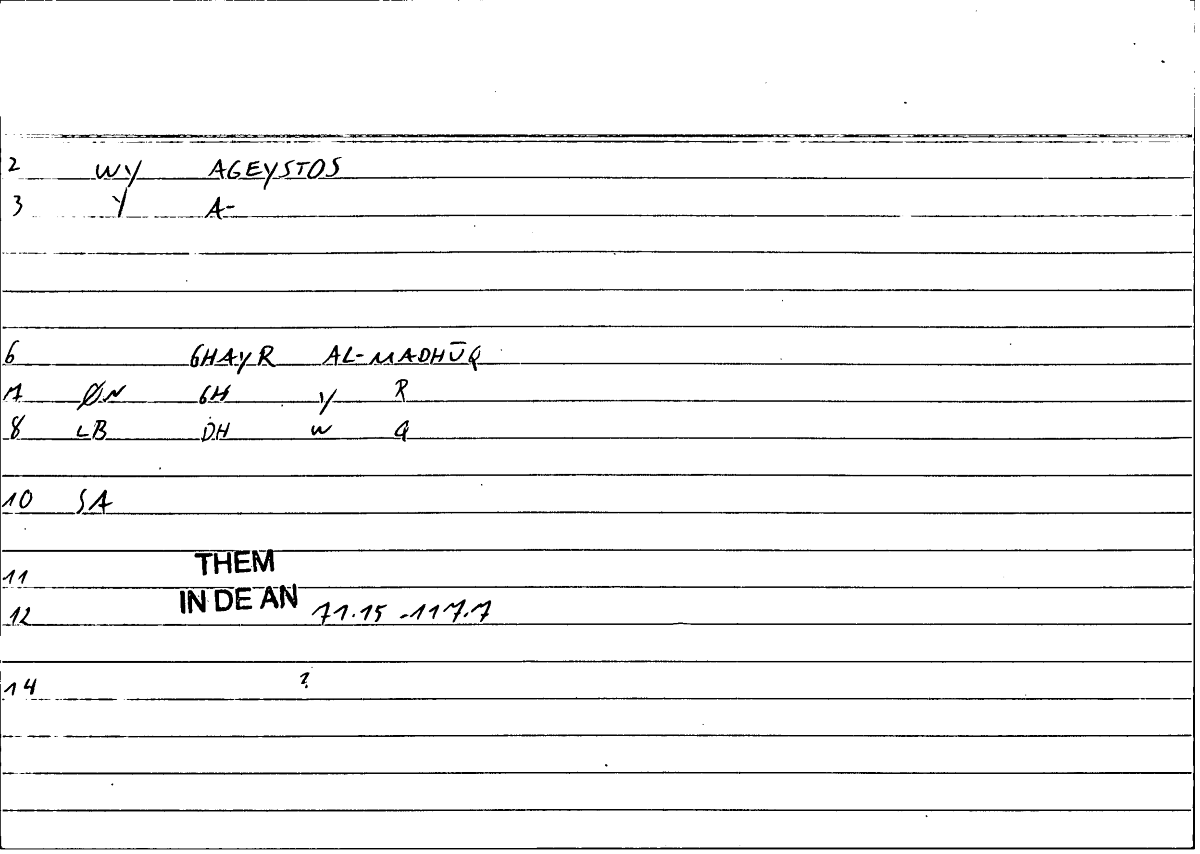 2 WY AGEYSTOS
3 Y A-
6 GHAYR AL-MADHŪQ
7 ØN GH Y R
8 LB DH W Q
10 SA
11 THEM
12 IN DE AN 71.15 -117.7
14 ?